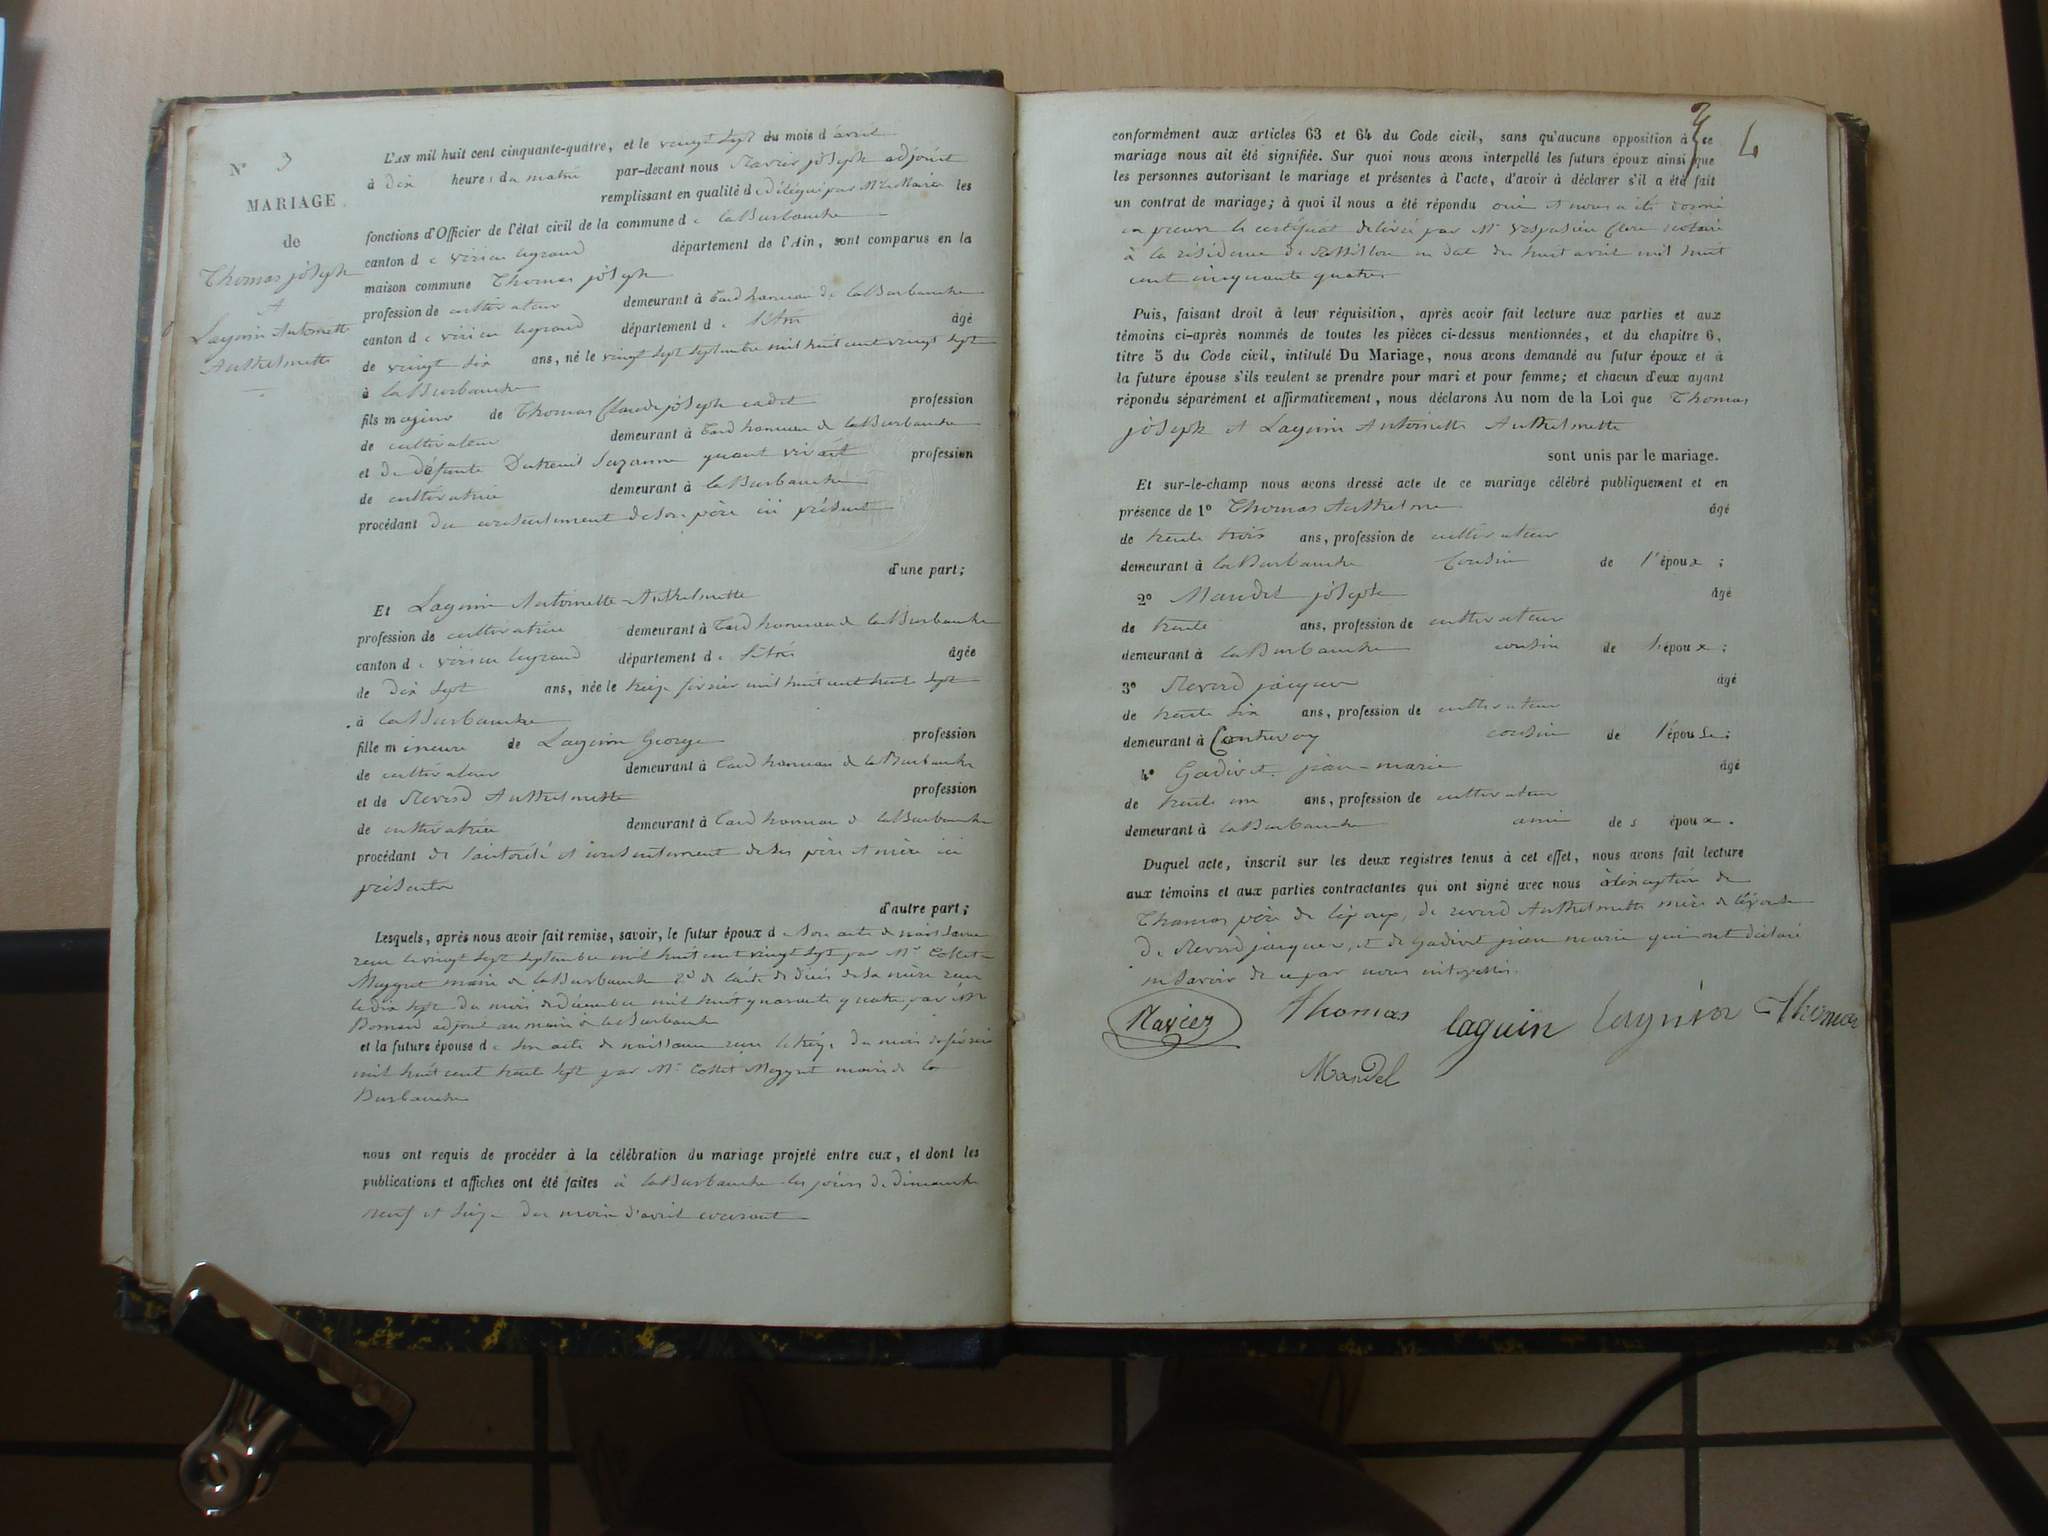 N° 3
MARIAGE
de
Thomas joseph
et
Laguin Antoinette
Anthelmette
L'AN mil huit cent cinquante-quatre, et le vingt sept du mois d avril
à dix heures du matin par-devant nous Ravier joseph adjoint
remplissant en qualité de délégué par Mr le Maire les
fonctions d'Officier de l'état civil de la commune de la Burbanche
canton de virieu legrand département de l'Ain, sont comparus en la
maison commune Thomas joseph
profession de cultivateur demeurant à hameau de la Burbanche
canton de virieu legrand département de l'Ain âgé
de vingt six ans, né le vingt sept septembre mil huit cent vingt sept
à la Burbanche
fils majeur de Thomas Claude joseph cadet profession
de cultivateur demeurant à hameau de la Burbanche
et de défunte Dutreuil Suzanne quant vivait profession
de cultivatrice demeurant à la Burbanche
procédant du consentement de son père ici présent
d'une part;
Et Laguin Antoinette Anthelmette
profession de cultivatrice demeurant à hameau de la Burbanche
canton de virieu legrand département de l'Ain âgée
de dix sept ans, née le treize février mil huit cent trente sept
à la Burbanche
fille mineure de Laguin George profession
de cultivateur demeurant à hameau de la Burbanche
et de Reverd Anthelmette profession
de cultivatrice demeurant à hameau de la Burbanche
procédant de l'autorité et consentement de ses père et mère ici
présents
d'autre part;
Lesquels, après nous avoir fait remise, savoir, le futur époux de son acte de naissance
reçu le vingt sept septembre mil huit cent vingt sept par Mr Collet
Meygret maire de la Burbanche 2° de l'acte de décès de sa mère reçu
le dix sept du mois de décembre mil huit quarante quatre par Mr
adjoint au maire de la Burbanche
et la future épouse de son acte de naissance reçu le treize du mois de février
mil huit cent trente sept par Mr Collet Meygret maire de la
Burbanche
nous ont requis de procéder à la célébration du mariage projeté entre eux, et dont les
publications et affiches ont été faites à la Burbanche les jours de dimanche
neuf et seize du mois d'avril courant
4
conformément aux articles 63 et 64 du Code civil, sans qu'aucune opposition à ce
mariage nous ait été signifiée. Sur quoi nous avons interpellé les futurs époux ainsi que
les personnes autorisant le mariage et présentes à l'acte, d'avoir à déclarer s'il a été fait
un contrat de mariage; à quoi il nous a été répondu oui et nous a été donné
en preuve le certificat délivré par Mr Vespasien notaire
à la résidence de Rossillon en date du huit avril mil huit
cent cinquante quatre
Puis, faisant droit à leur réquisition, après avoir fait lecture aux parties et aux
témoins ci-après nommés de toutes les pièces ci-dessus mentionnées, et du chapitre 6,
titre 5 du Code civil, intitulé Du Mariage, nous avons demandé au futur époux et à
la future épouse s'ils veulent se prendre pour mari et pour femme; et chacun d'eux ayant
répondu séparément et affirmativement, nous déclarons Au nom de la Loi que Thomas
joseph et Laguin Antoinette Anthelmette
sont unis par le mariage.
Et sur-le-champ nous avons dressé acte de ce mariage célébré publiquement et en
présence de 1° Thomas Anthelme âgé
de trente trois ans, profession de cultivateur
demeurant à la Burbanche Cousin de l'époux ;
2° Mandel joseph âgé
de trente ans, profession de cultivateur
demeurant à la Burbanche cousin de l'époux ;
3° Reverd jacques âgé
de trente six ans, profession de cultivateur
demeurant à Contrevoz cousin de l'épouse ;
4° Gadivet jean-marie âgé
de trente un ans, profession de cultivateur
demeurant à la Burbanche ami des époux.
Duquel acte, inscrit sur les deux registres tenus à cet effet, nous avons fait lecture
aux témoins et aux parties contractantes qui ont signé avec nous à l'exception de
Thomas père de l'époux, de reverd Anthelmette mère de l'épouse
de Reverd jacques, et de Gadivet jean marie qui ont déclaré
ne savoir de ce par nous interpellés.
Ravier Thomas laguin laguin Thomas
Mandel